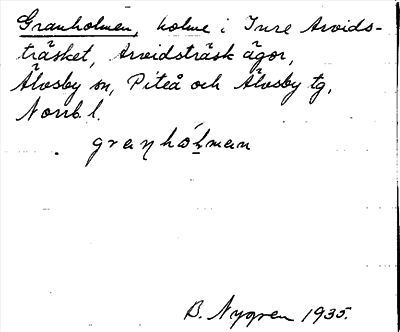 Granholmen, holme i Inre Arvids-
träsket, Arvidsträsk ägor,
Älvsby sn, Piteå och Älvsby tg,
Norrb. l.
graŋhòl̥man
B. Nygren 1935.